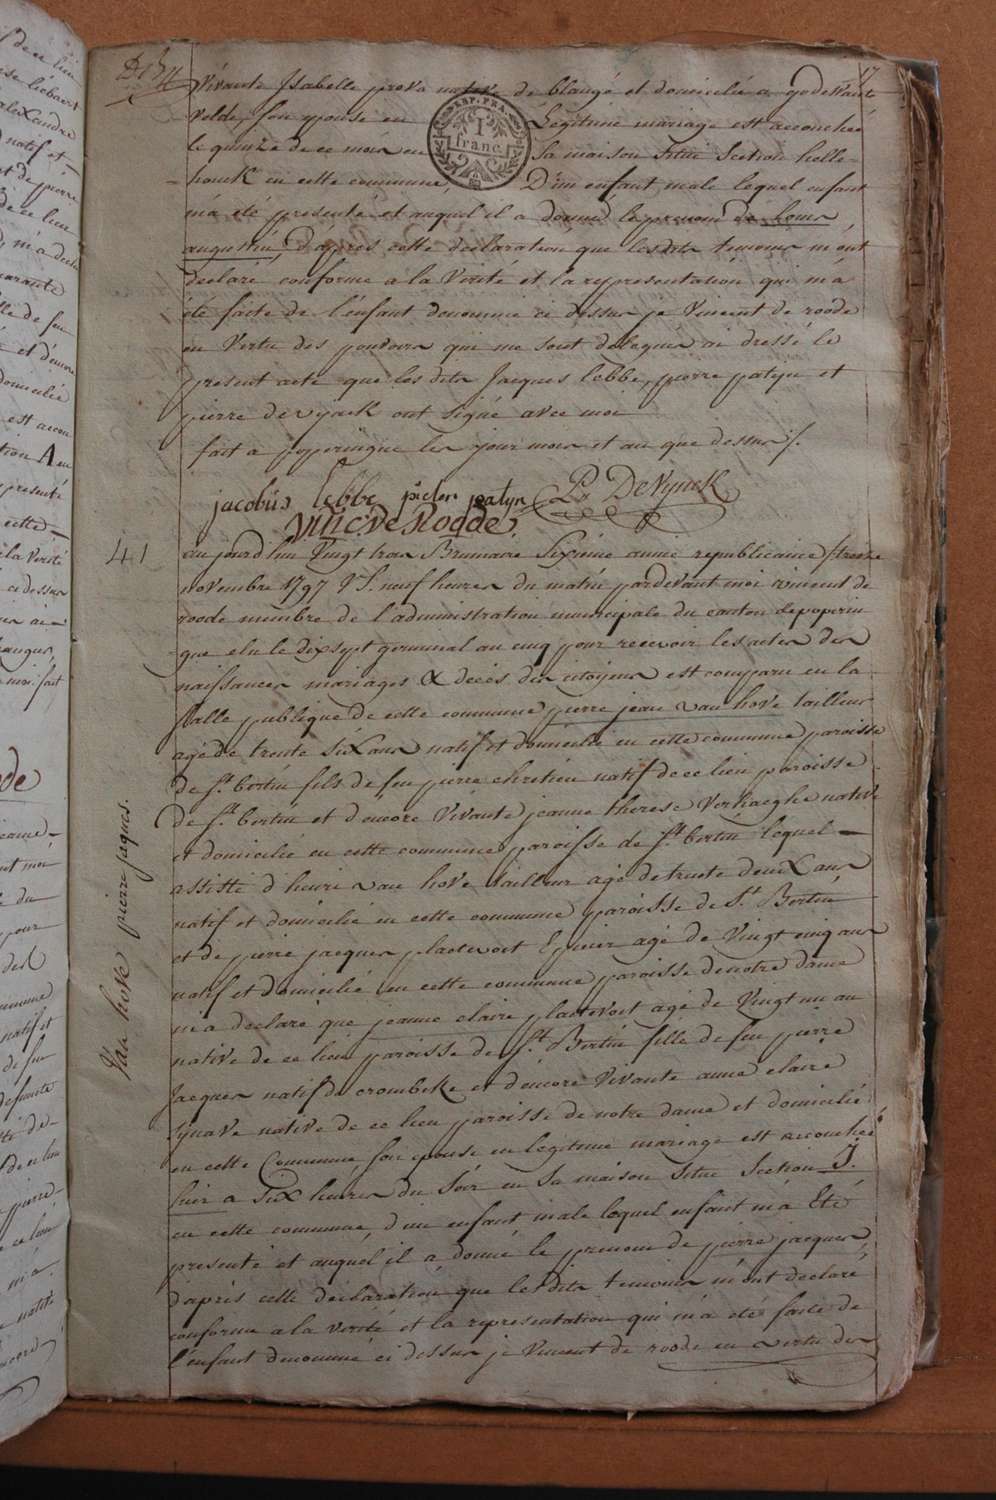 17
vivante Isabelle prova native de blangé et domiciliée a godevarts
velde, son epouse en Légitime mariage est accouchée
le quinze de ce mois en sa maison situe Section helle-
-houck en cette commune, D'un enfant male lequel enfant
m'a été presenté et auquel il a donné le prenom de louis
augustin, d'apres cette declaration que lesdits temoins m'ont
declaré conforme a la Verité et la representation qui m'a
été faite de l'enfant denommé ci dessus je Vincent de roode
en Vertu des pouvoirs qui me sont delegues ai dressé le
present acte que les dits Jacques lebbe, pierre patyn et
pierre devynck ont signé avec moi
fait a poperingue les jour mois et an que dessus /.
jacobus lebbe pieter patyn P. DeVynck
VINC: De Roode.
41
aujourd'hui Vingt trois Brumaire Sixieme année republicaine /treize
novembre 1797 V.S. neuf heures du matin pardevant moi vincent de
roode membre de l'administration municipale du canton de poperin
-gue elu le dix sept germinal an cinq pour recevoir les actes des
naissances mariages & décès des citoyens est comparu en la
salle publique de cette commune pierre jean van hove tailleur
agé de trente Six ans natif et domicilié en cette commune paroisse
de St. bertin fils de feu pierre chretien natif de ce lieu paroisse
de St. bertin et d'encore Vivante jeanne therese Verhaeghe native
et domicilié en cette commune paroisse de St. bertin lequel
assisté d'henri van hove tailleur agé de trente deux ans
natif et domicilié en cette commune paroisse de St. Bertin
et de pierre jacques plaetevoet Epicier agé de Vingt cinq ans
natif et domicilié en cette commune paroisse de notre dame
m'a declaré que jeanne claire plaetevoet agé de Vingt un an
native de ce lieu paroisse de St. Bertin fille de feu pierre
Jacques natif de crombeke et d'encore Vivante anne claire
native de ce lieu paroisse de notre dame et domicilié
en cette Commune, son epouse en legitime mariage est accouchée
hier a Six heures du Soir en Sa maison Situe Section J.
en cette commune, d'un enfant male lequel enfant m'a Eté
presenté et auquel il a donné le prenom de pierre jacques,
d'aprés cette declaration que lesdits temoins m'ont declaré
conforme a la verité et la representation qui m'a été faite de
l'enfant denommé ci dessus je Vincent de roode en vertu des
Van hove pierre jaques.